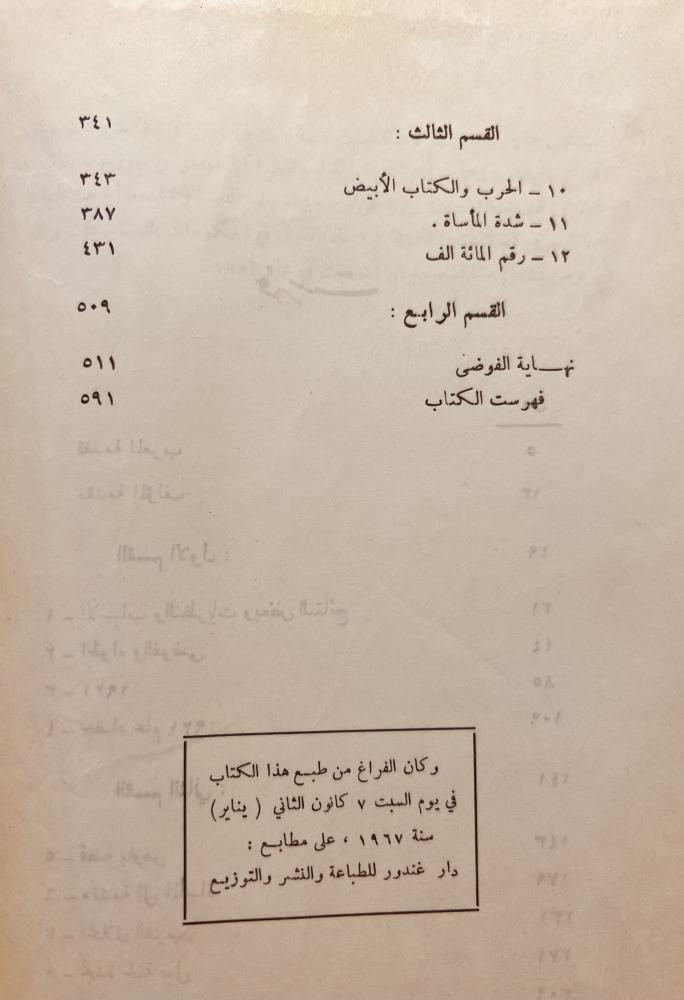 القسم الثالث : ٣٤١
١٠ – الحرب والكتاب الأبيض ٣٤٣
١١ – شدة المأساة . ٣٨٧
١٢ – رقم المائة الف ٤٣١
القسم الرابع : ٥٠٩
نهاية الفوضى ٥١١
فهرست الكتاب ٥٩١
وكان الفراغ من طبع هذا الكتاب
في يوم السبت ٧ كانون الثاني ( يناير )
سنة ١٩٦٧ ، على مطابع :
دار غندور للطباعة والنشر والتوزيع